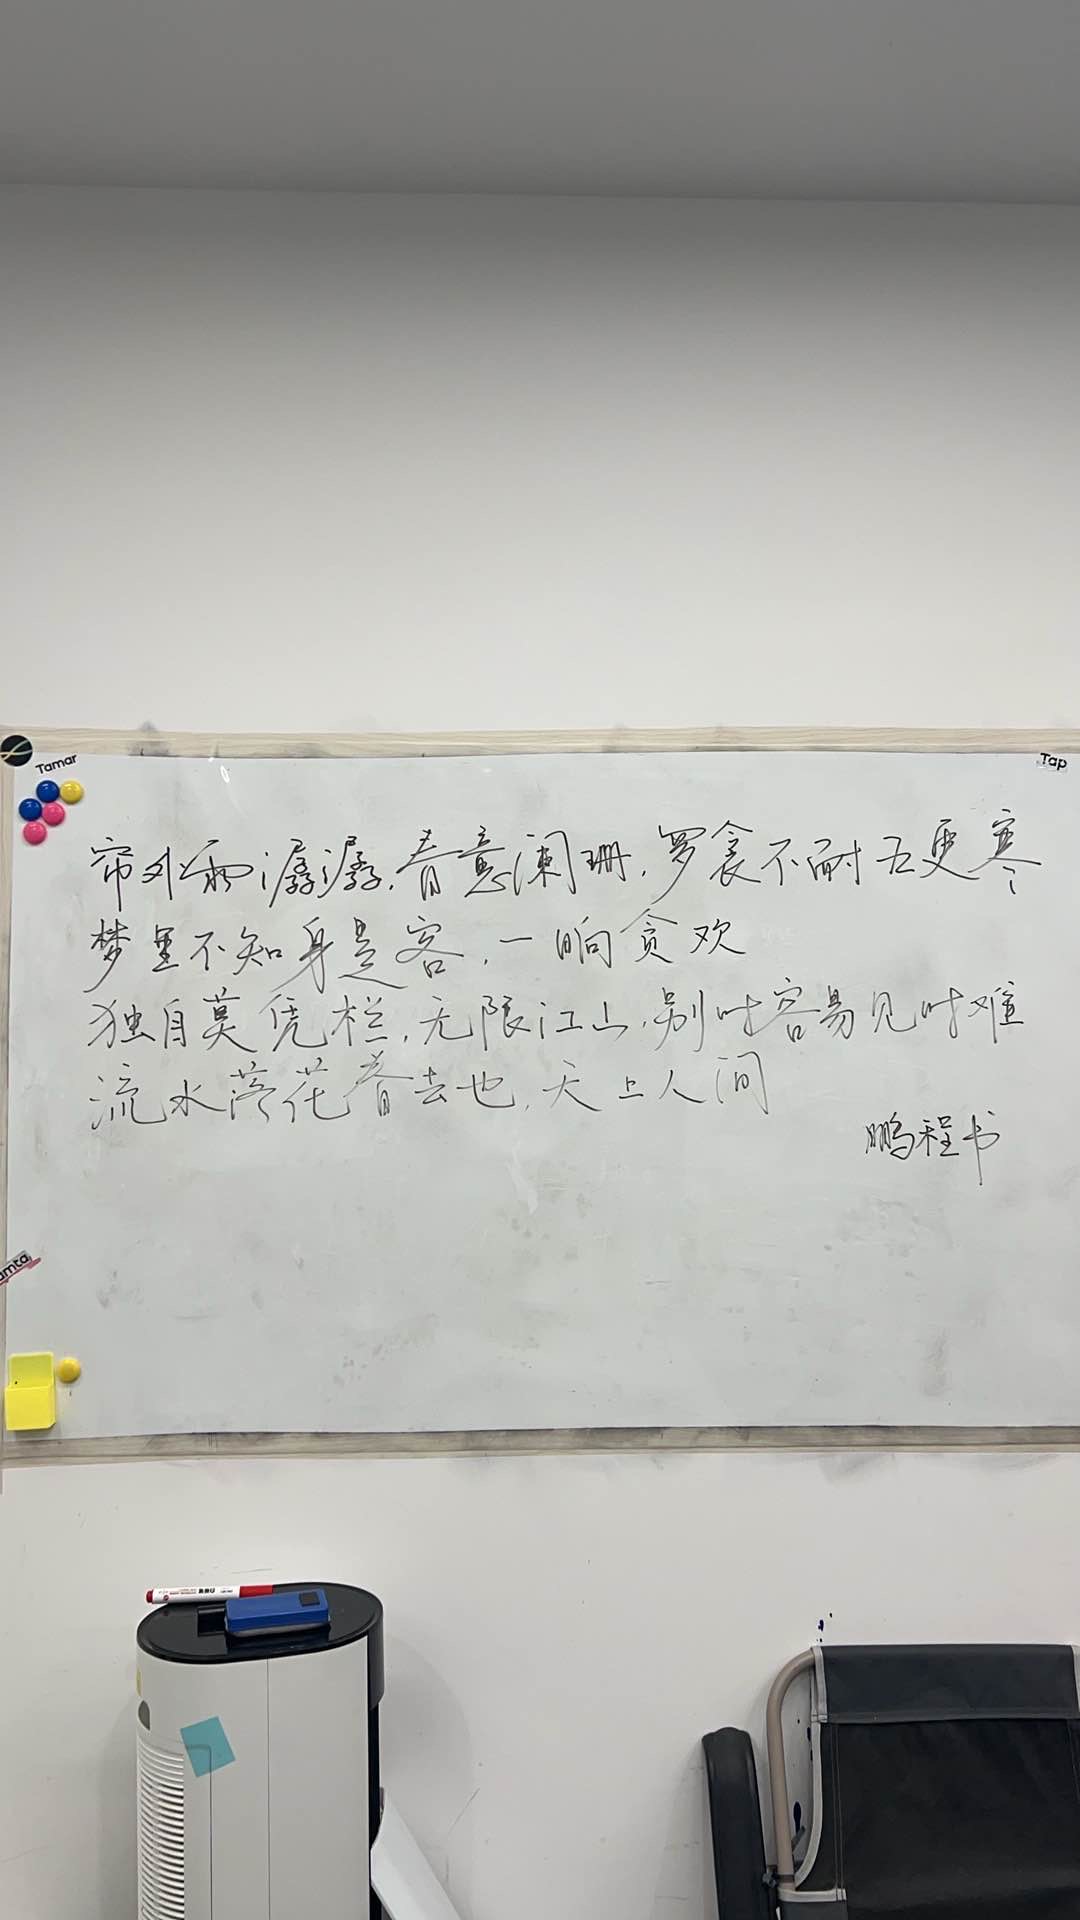 Tamar
Tap
帘外雨潺潺,春意阑珊,罗衾不耐五更寒
梦里不知身是客,一晌贪欢
独自莫凭栏,无限江山,别时容易见时难
流水落花春去也,天上人间
鹏程书